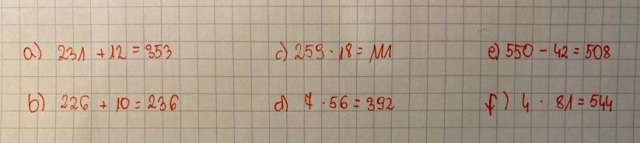 a) 231 + 12 = 353 c) 259 · 18 = 111 e) 550 - 42 = 508
b) 226 + 10 = 236 d) 7 · 56 = 392 f) 4 · 81 = 544